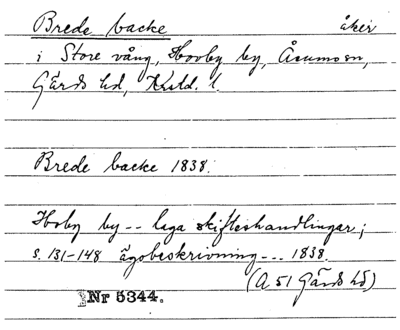 Brede backe åker
i Store vång, Hovby by, Åsumssn,
Gärds hd, Krstd. l.
Brede backe 1838.
Hoby by -- laga skifteshandlingar;
s. 131-148 ägobeskrivning --- 1838.
(A 51 Gärds hd)
Nr 5344.